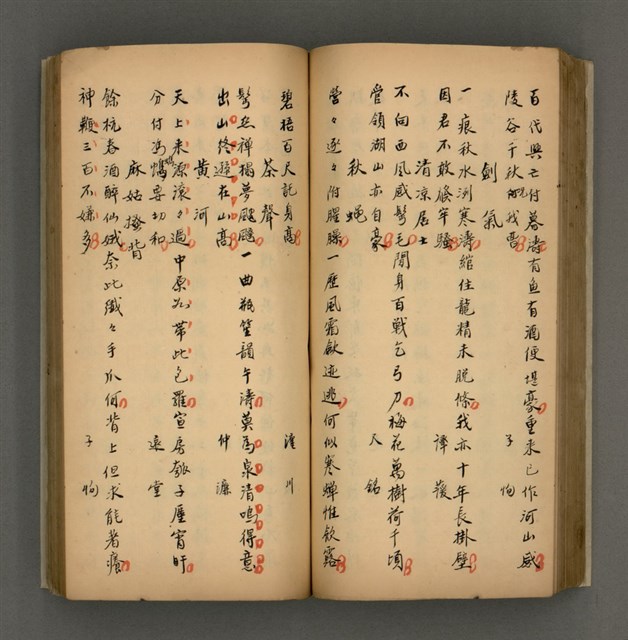 百代興亡付暮濤有魚有酒便堪豪重來已作河山感
陵谷千秋況我曹 子恂
劍氣
一痕秋水冽寒濤綰住龍精未脫絛我亦十年長掛壁
因君不敢廢牢騷 譚葰
清涼居士
不向西風感鬢毛閒身百戰乞弓刀梅花萬樹荷千頃
管領湖山亦自豪 天銘
秋蠅
營々逐々附羶臊一歷風霜斂迹逃何似寒蟬惟飲露
碧梧百尺託身高 滄川
茶聲
鬢絲禪榻夢飄颻一曲瓶笙韻午濤莫爲泉清嗚得意
出山終遜在山高 仲濂
黃河
天上來源滾々過中原如帶此包羅宣房瓠子壓宵旰
分付馮夷要切和 遠堂
麻姑搔背
餘杭春酒醉仙娥奈此纖々手爪何背上但求能著癢
神鞭三百不嫌多 子恂